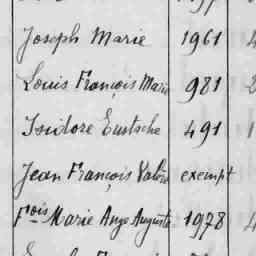 Joseph Marie 1961
Louis François Marie 981
Isidore Eustache 491
Jean François Valère exempt
Fois Marie Ange Auguste 1978